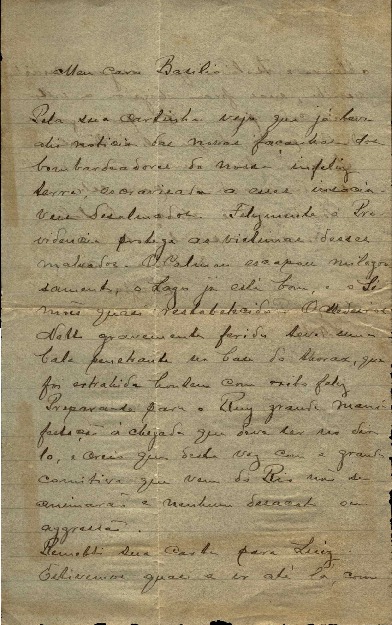 Meu caro Basilio
Pela sua cartinha vejo que já teve
ahi noticia das novas façanhas dos
bombardeadores da nossa infeliz
terra, escravisada a esses insacia-
veis desalmados. Felizmente a Pro
videncia protege as victimas desses
malvados. O Calmon escapou milagro
samente, o Lago ja está bom, e o Si
mões quasi restabelecido. O Medeiros
Netto gravemente ferido teve uma
bala penetrante na base do thorax, que
foi extrahida hontem com exito feliz
Preparando para o Ruy grande mani
festação á chegada que deve ter no dia
10, e creio que desta vez com a grande
comitiva que vem do Rio não se
animarão a nenhum desacato ou
aggressão.
Remetti sua carta para Luiz.
Estivemos quasi a ir até lá, com